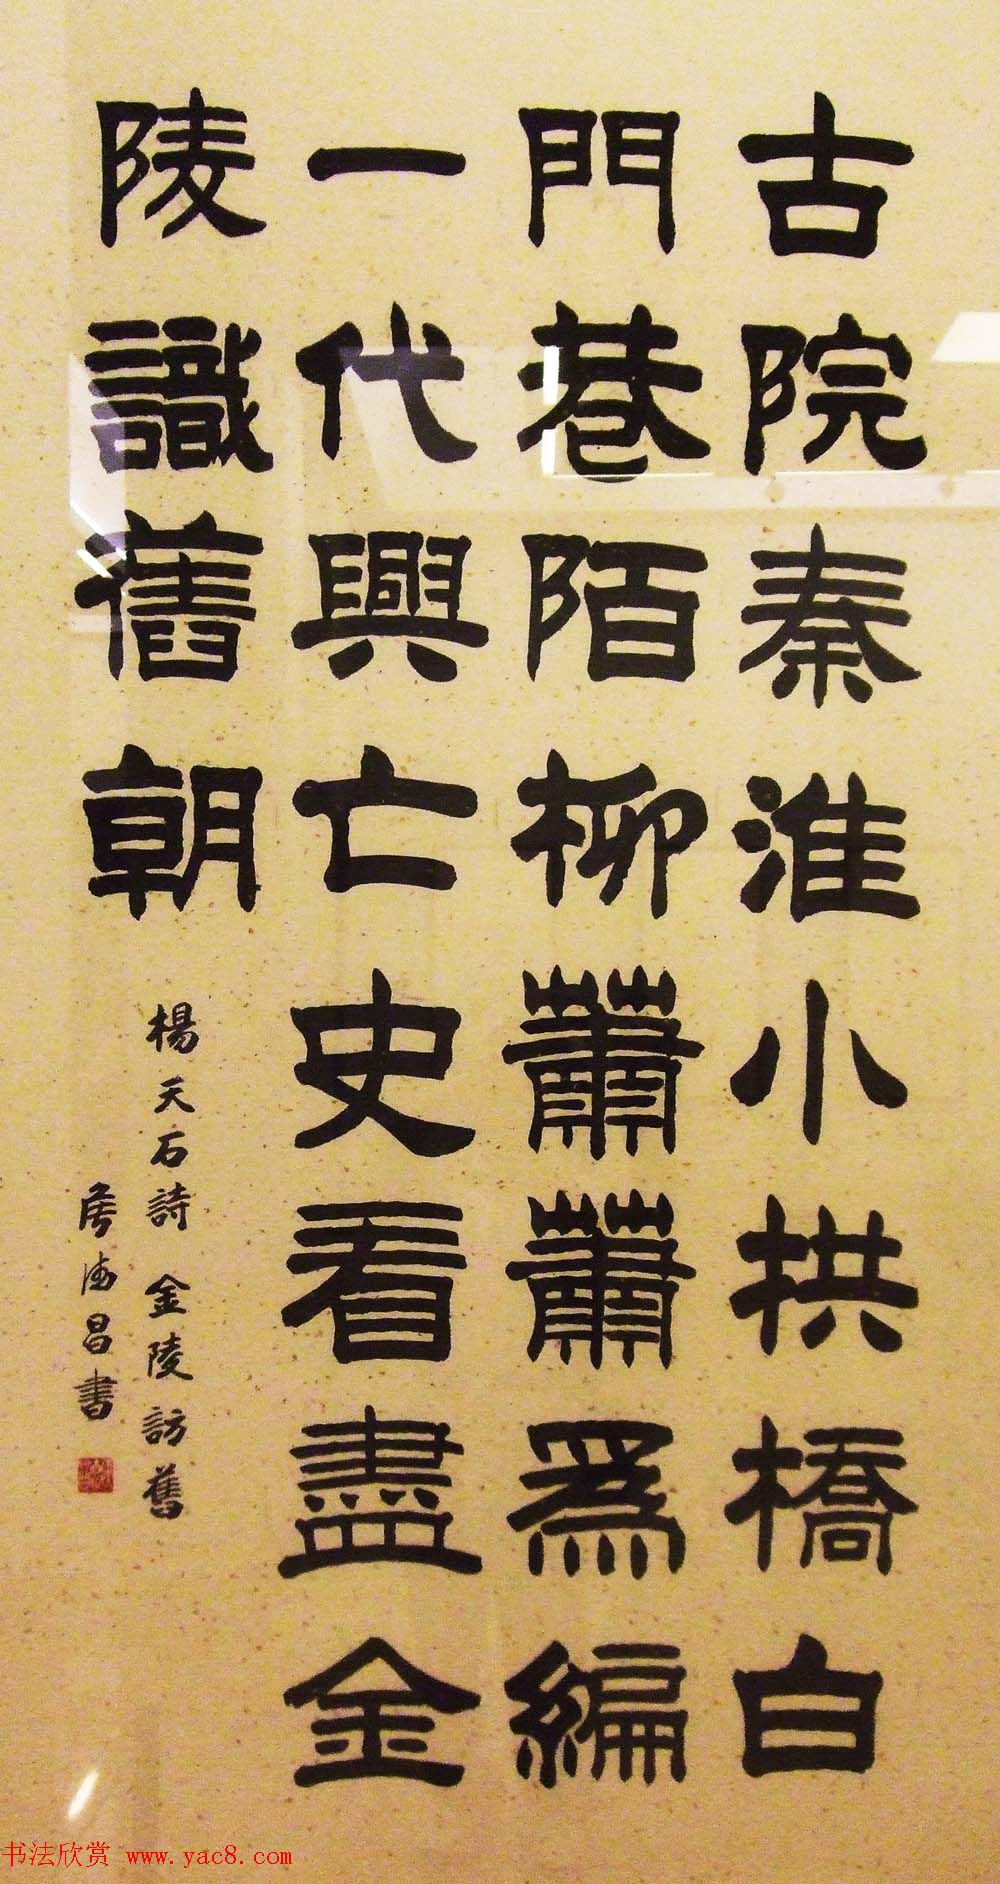 古院秦淮小拱橋白
門巷陌柳蕭蕭為編
一代興亡史看盡金
陵識舊朝
楊天石詩 金陵訪舊
房德昌書
书法欣赏 www.yac8.com